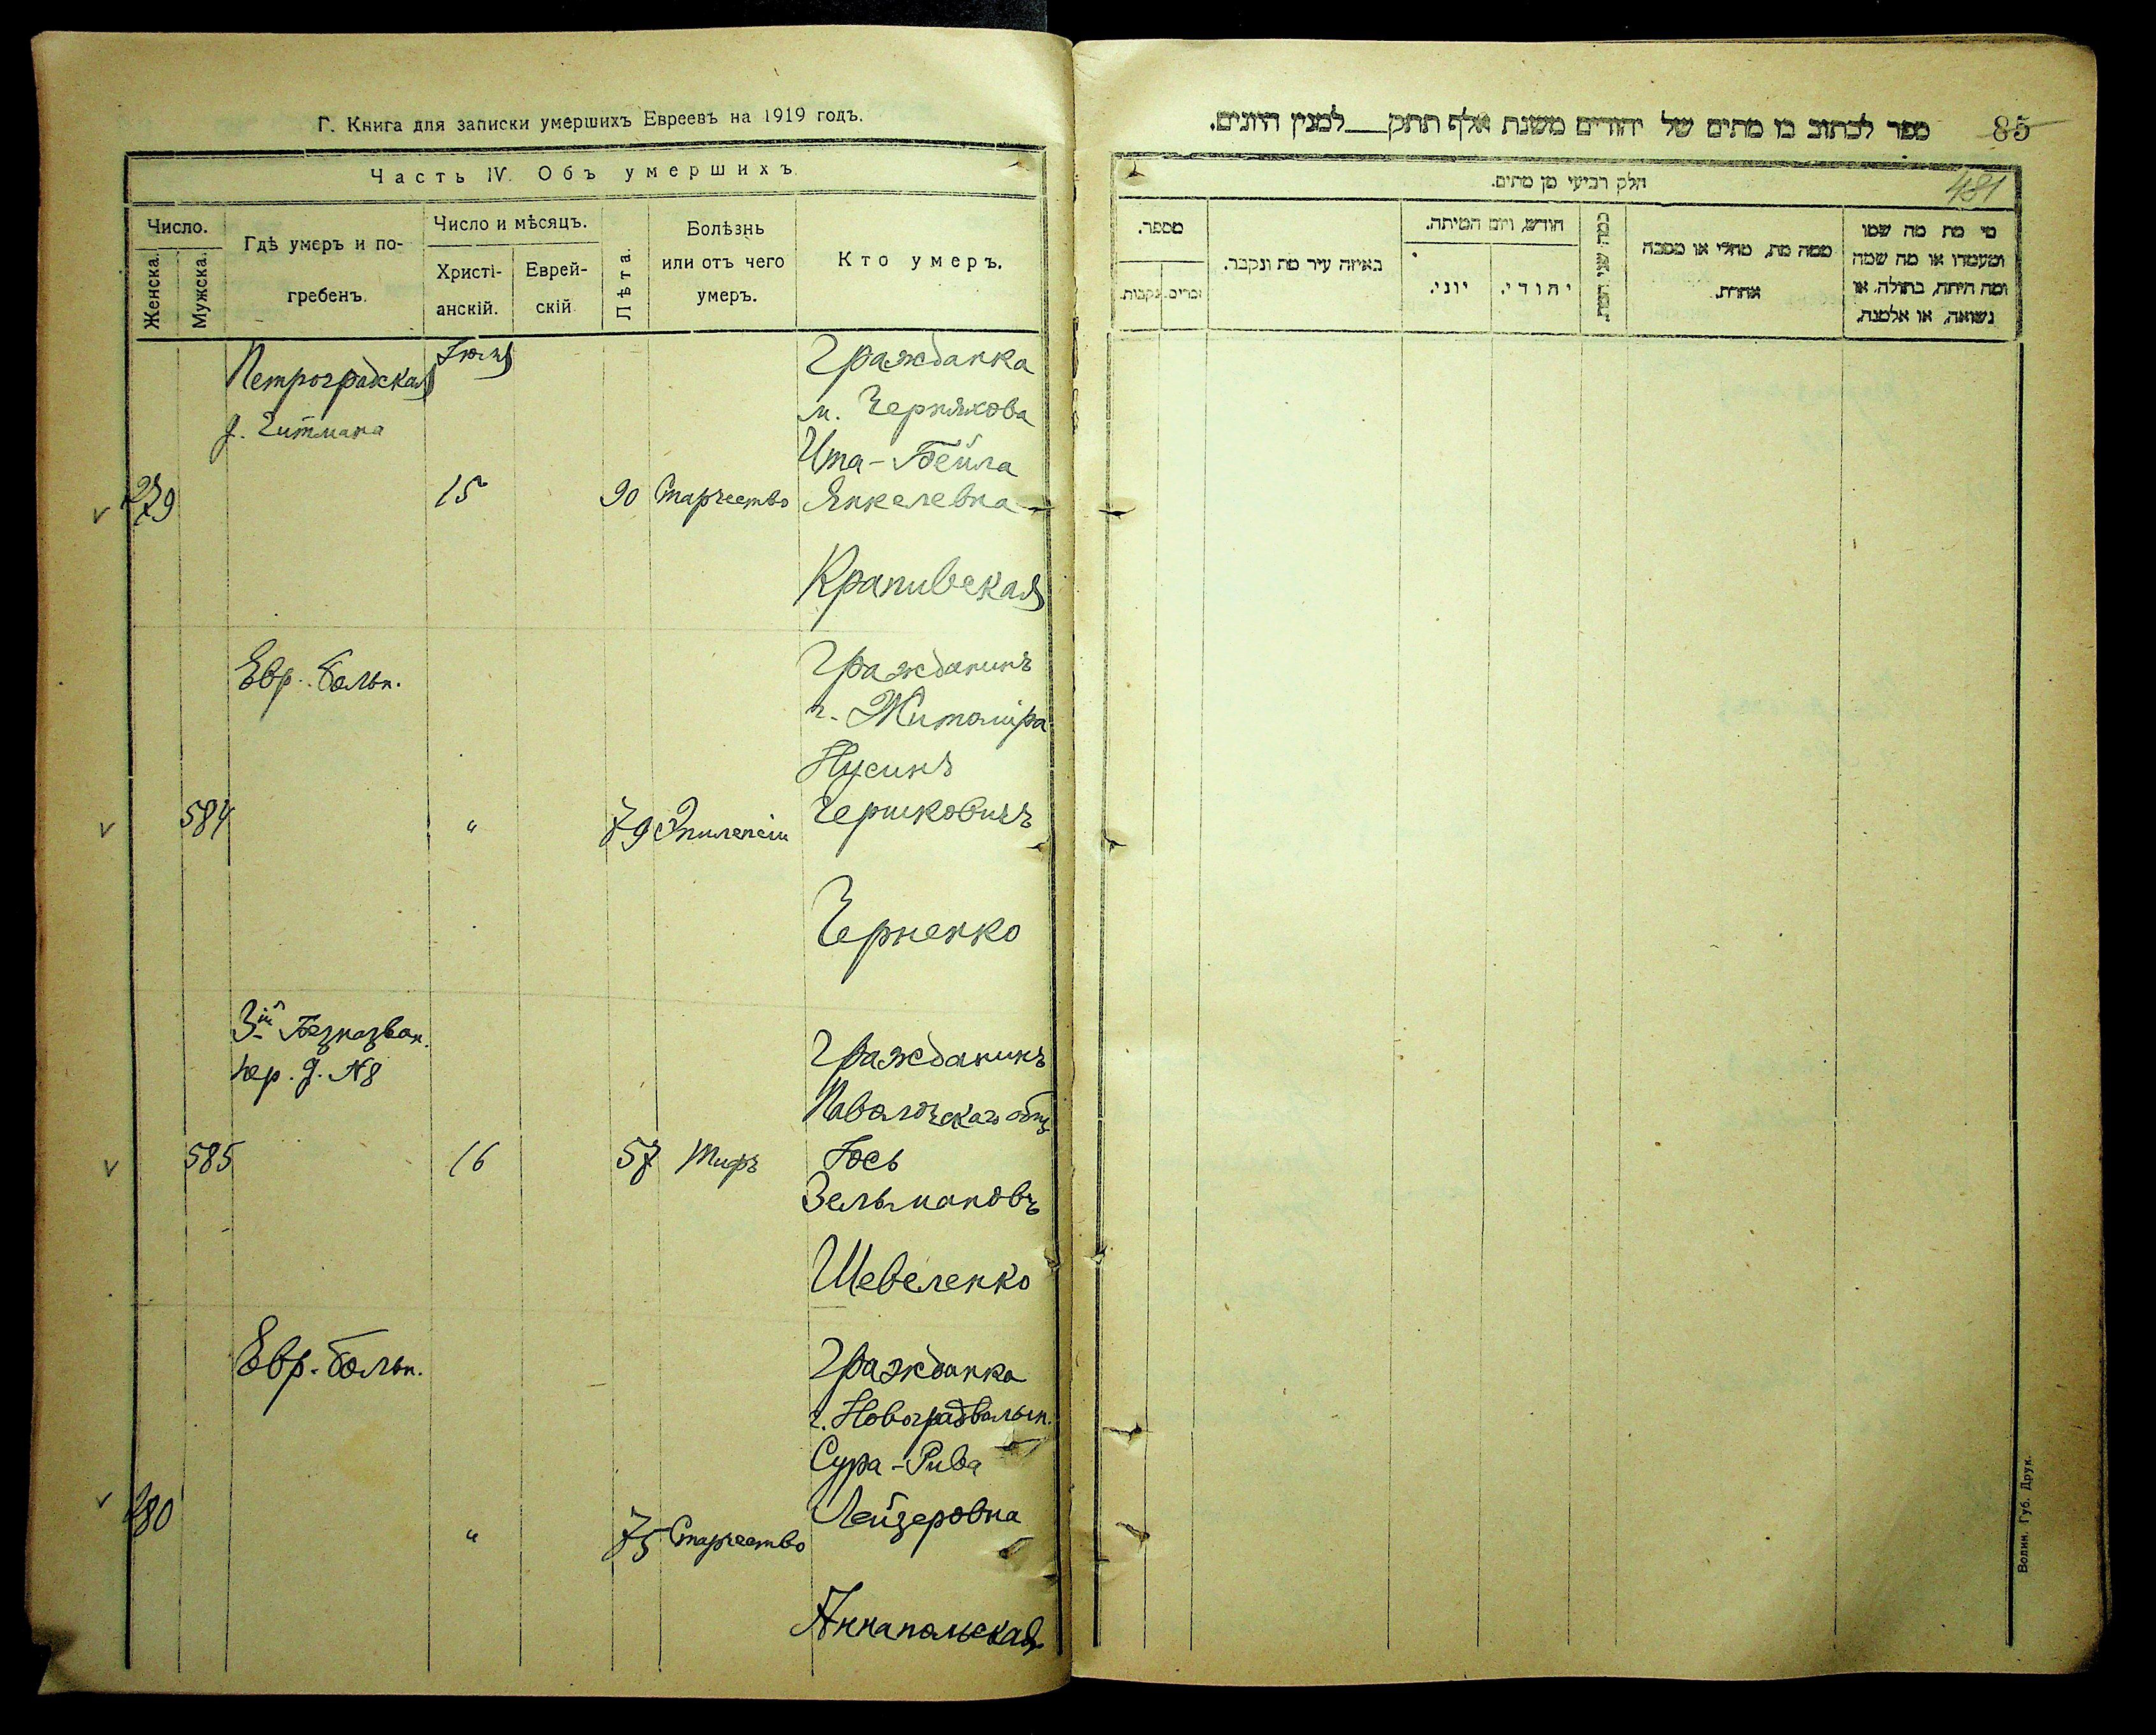 Г. Книга для записки умершихъ Евреевъ на 1919 годъ.
Часть IV. Объ умершихъ
Число.
Женска.
Мужска.
Гдѣ умеръ и по-
гребенъ.
Число и мѣсяцъ.
Христі-
анскій.
Еврей-
скій
Лѣта.
Болѣзнь
или отъ чего
умеръ.
Кто умеръ.
Петроградская
д. Гитмана
279
Іюля
15
90
Старчество
Гражданка
м. Чернякова
Ита-Бейла
Янкелевна
Крапивская
Евр. больн.
584
"
79
Эпилепсіи
Гражданинъ
г. Житоміра
Нусинъ
Гершковичъ
Черненко
3й Безназван.
пер. д. №8
585
16
57
Тифъ
Гражданинъ
Паволочскаго общ
Іось
Зельмановъ
Шевеленко
Евр. больн.
280
"
75
Старчество
Гражданка
г. Новоградволын.
Сура-Рива
Лейзеровна
Аннапольская
ספר לכתוב בו מתים של יהודים משנת אלף תתק__למנין היונים.
85
חלק רביעי מן מתים.
481
מספר.
זכרים.
נקבות.
באיזה עיר מת ונקבר.
חודש, ויום המיתה.
יוני.
יהודי.
ממה מת, מחלי או מסבה
אחרת.
מי מת מה שמו
ומעמדו או מה שמה
ומה היתה, בתולה, או
נשואה, או אלמנה.
Волин. Губ. Друк.